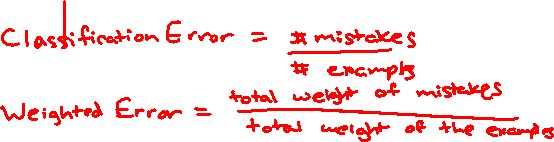 Classification Error = # mistakes
# examples
Weighted Error = total weight of mistakes
total weight of the examples